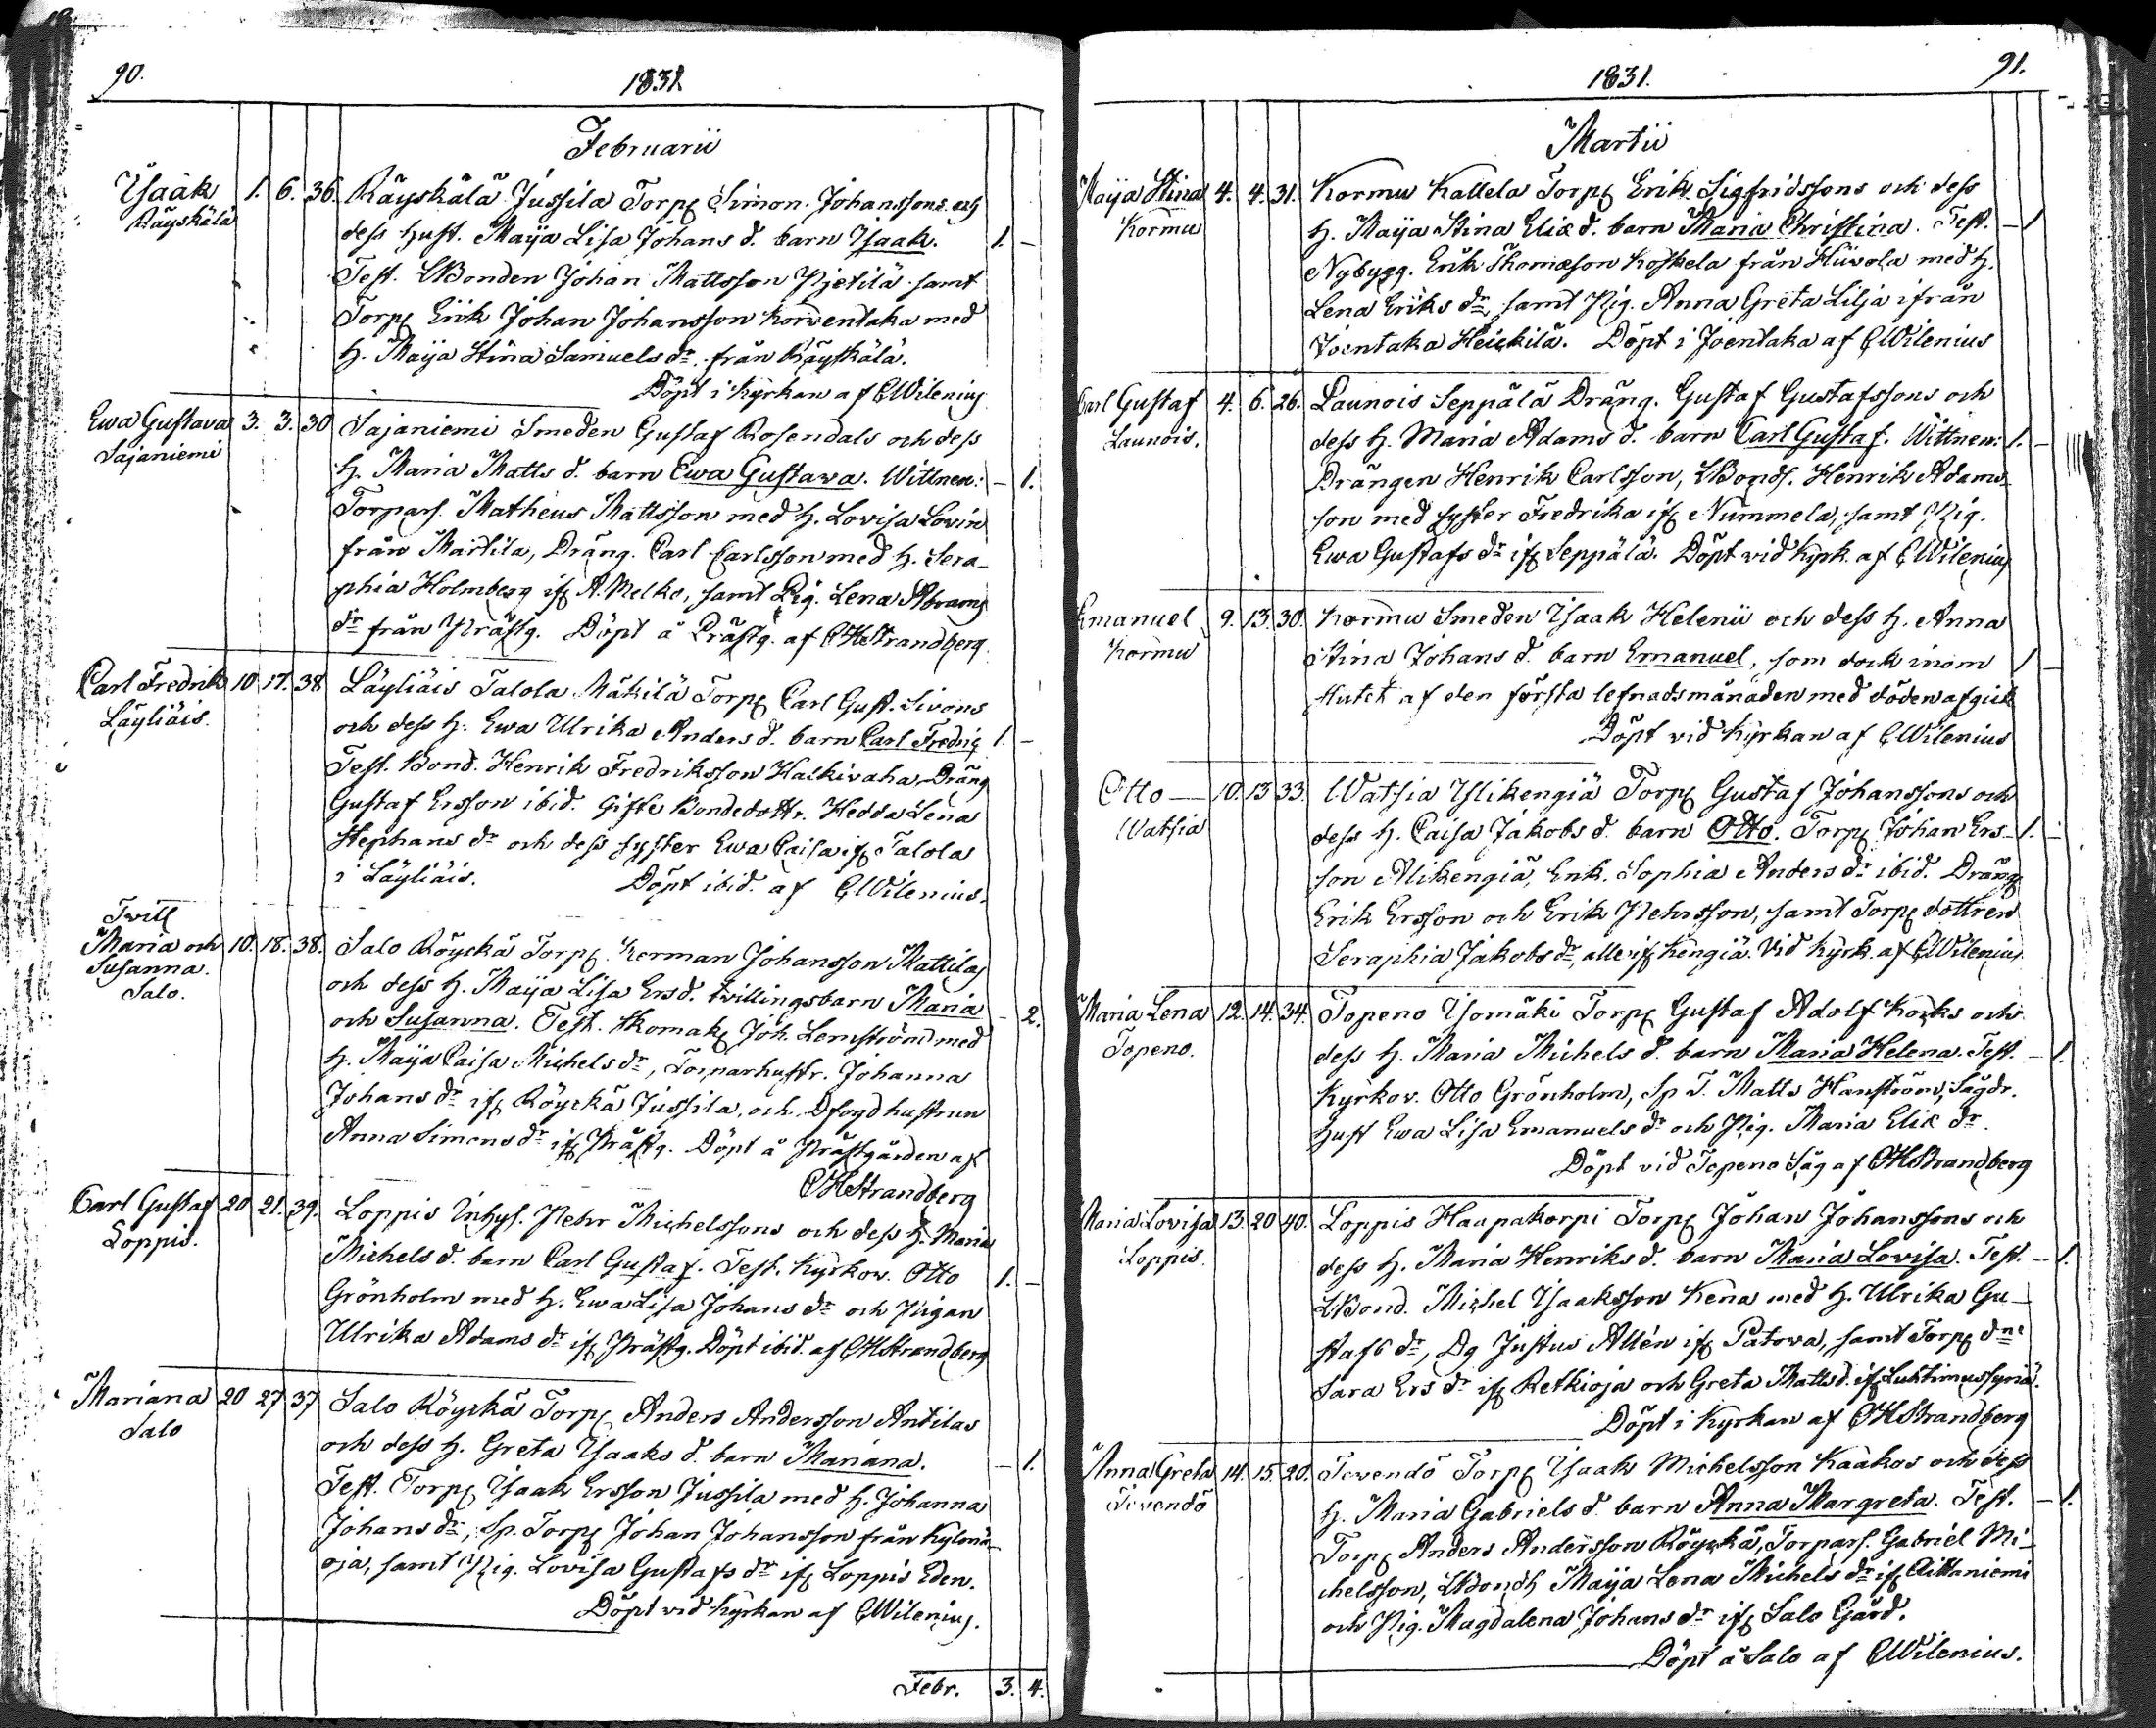 90.
1831.
Februarii
Isaak 1. 6. 36. Räyskälä Jussila Torp. Simon Johanssons och
Räyskälä dess hust. Maija Lisa Johans d. barn Isaak. 1. –
Test. LBonden Johan Mattsson Pietilä samt
Torp. Erik Johan Johansson Korventaka med
h. Maija Stina Samuels dr. från Räyskälä.
Döpt i Kyrkan af CWilenius
Ewa Gustava 3. 3. 30 Sajaniemi Smeden Gustaf Rosendals och dess
Sajaniemi h. Maria Matts d. barn Ewa Gustava. Wittnen: – 1.
Torpars. Matheus Mattsson med h. Lovisa Lovin
från Martila, Dräng. Carl Carlsson med h. Sera-
phia Holmberg if. A. Melko, samt Pig. Lena Abrams
dr från Prästg. Döpt å Prästg. af CHStrandberg
Carl Fredrik 10 17. 38 Läyliäis Talola Mäkilä Torp. Carl Gust. Sivons
Läyliäis. och dess h. Ewa Ulrika Anders d. barn Carl Fredric 1. –
Test. Bond. Henrik Fredriksson Halkivaha, Dräng
Gustaf Ersson ibid. Gifte Bondedottr. Hedda Lena
Stephans dr och dess syster Ewa Caisa if. Talola
i Läyliäis. Döpt ibid. af CWilenius.
Twill
Maria och 10. 18. 38. Salo Röyskä Torp. Herman Johansson Mattilas
Susanna. och dess h. Maija Lisa Ers d. tvillingsbarn Maria
Salo. och Susanna. Test. Skomak. Joh. Lernström med – 2.
h. Maija Caisa Michels dr, Torparhustr. Johanna
Johans dr if. Röyskä Jussila, och Dfogdhustrun
Anna Simons dr if. Prästg. Döpt å Prästgården af
CHStrandberg
Carl Gustaf 20 21. 39. Loppis Inhys. Pehr Michelssons och dess h. Maria
Loppis. Michels d. barn Carl Gustaf. Test. Kyrkov. Otto 1. –
Grönholm med h. Ewa Lisa Johans dr och Pigan
Ulrika Adams dr if. Prästg. Döpt ibid. af CHStrandberg
Mariana 20 27 37 Salo Röyskä Torp. Anders Andersson Antilas
Salo och dess h. Greta Isaaks d. barn Mariana. – 1.
Test. Torp. Isaak Ersson Jussila med h. Johanna
Johans dr, Sp. Torp. Johan Johansson från Kylmä-
oja, samt Pig. Lovisa Gustafs dr if. Loppis Eden.
Döpt vid Kyrkan af CWilenius.
Febr. 3. 4.
1831.
91.
Martii
Maija Stina 4. 4. 31. Kormu Kallela Torp. Erik Sigfridssons och dess
Kormu h. Maija Stina Eliæ d. barn Maria Christina. Test. – 1
Nybygg. Erik Thomæson Koskela från Hiivola med h.
Lena Eriks dr, samt Pig. Anna Greta Lilja ifrån
Joentaka Heickilä. Döpt i Joentaka af CWilenius
Carl Gustaf 4. 6. 26. Launois Seppälä Dräng. Gustaf Gustafssons och
Launois. dess h. Maria Adams d. barn Carl Gustaf. Wittnen: 1. –
Drängen Henrik Carlsson, LBonds. Henrik Adams-
son med syster Fredrika if. Nummela, samt Pig.
Ewa Gustafs dr if. Seppälä. Döpt vid Kyrk. af CWilenius
Emanuel 9. 13. 30. Kormu Smeden Isaak Helenii och dess h. Anna
Kormu Stina Johans d. barn Emanuel, som dock inom 1 –
slutet af den första lefnadsmånaden med döden afgick
Döpt vid Kyrkan af CWilenius
Otto 10. 13 33. Watsia Ylikengiä Torp. Gustaf Johanssons och
Watsia dess h. Caisa Jakobs d. barn Otto. Torp. Johan Ers- 1. –
son Alikengiä, Enk. Sophia Anders dr ibid. Dräng.
Erik Ersson och Erik Pehrsson, samt Torp. dottren
Seraphia Jakobs dr, alle if. Kengiä. Vid Kyrk. af CWilenius
Maria Lena 12. 14. 34. Topeno Isomäki Torp. Gustaf Adolf Korks och
Topeno. dess h. Maria Michels d. barn Maria Helena. Test. – 1.
Kyrkov. Otto Grönholm, Sp T. Matts Hanström, Sågdr.
Hust Ewa Lisa Emanuels dr och Pig. Maria Eliæ dr.
Döpt vid Topeno Såg af CHStrandberg
Maria Lovisa 13. 20 40. Loppis Haapakorpi Torp. Johan Johanssons och
Loppis. dess h. Maria Henriks d. barn Maria Lovisa. Test. – 1.
LBond. Michel Isaaksson Kena med h. Ulrika Gu-
stafs dr, Dg Justus Allén if. Patova, samt Torp. dne
Sara Ers dr if. Retkioja och Greta Matts d. if. Luhtimussyriä.
Döpt i Kyrkan af CHStrandberg
Anna Greta 14. 15. 20. Tevendö Torp. Isaak Michelsson Kaakos och dess
Tevendö h. Maria Gabriels d. barn Anna Margreta. Test. – 1.
Torp. Anders Andersson Röyskä, Torpars. Gabriel Mi-
chelsson, LBondh Maija Lena Michels dr if. Aittaniemi
och Pig. Magdalena Johans dr if. Salo Gård.
Döpt å Salo af CWilenius.